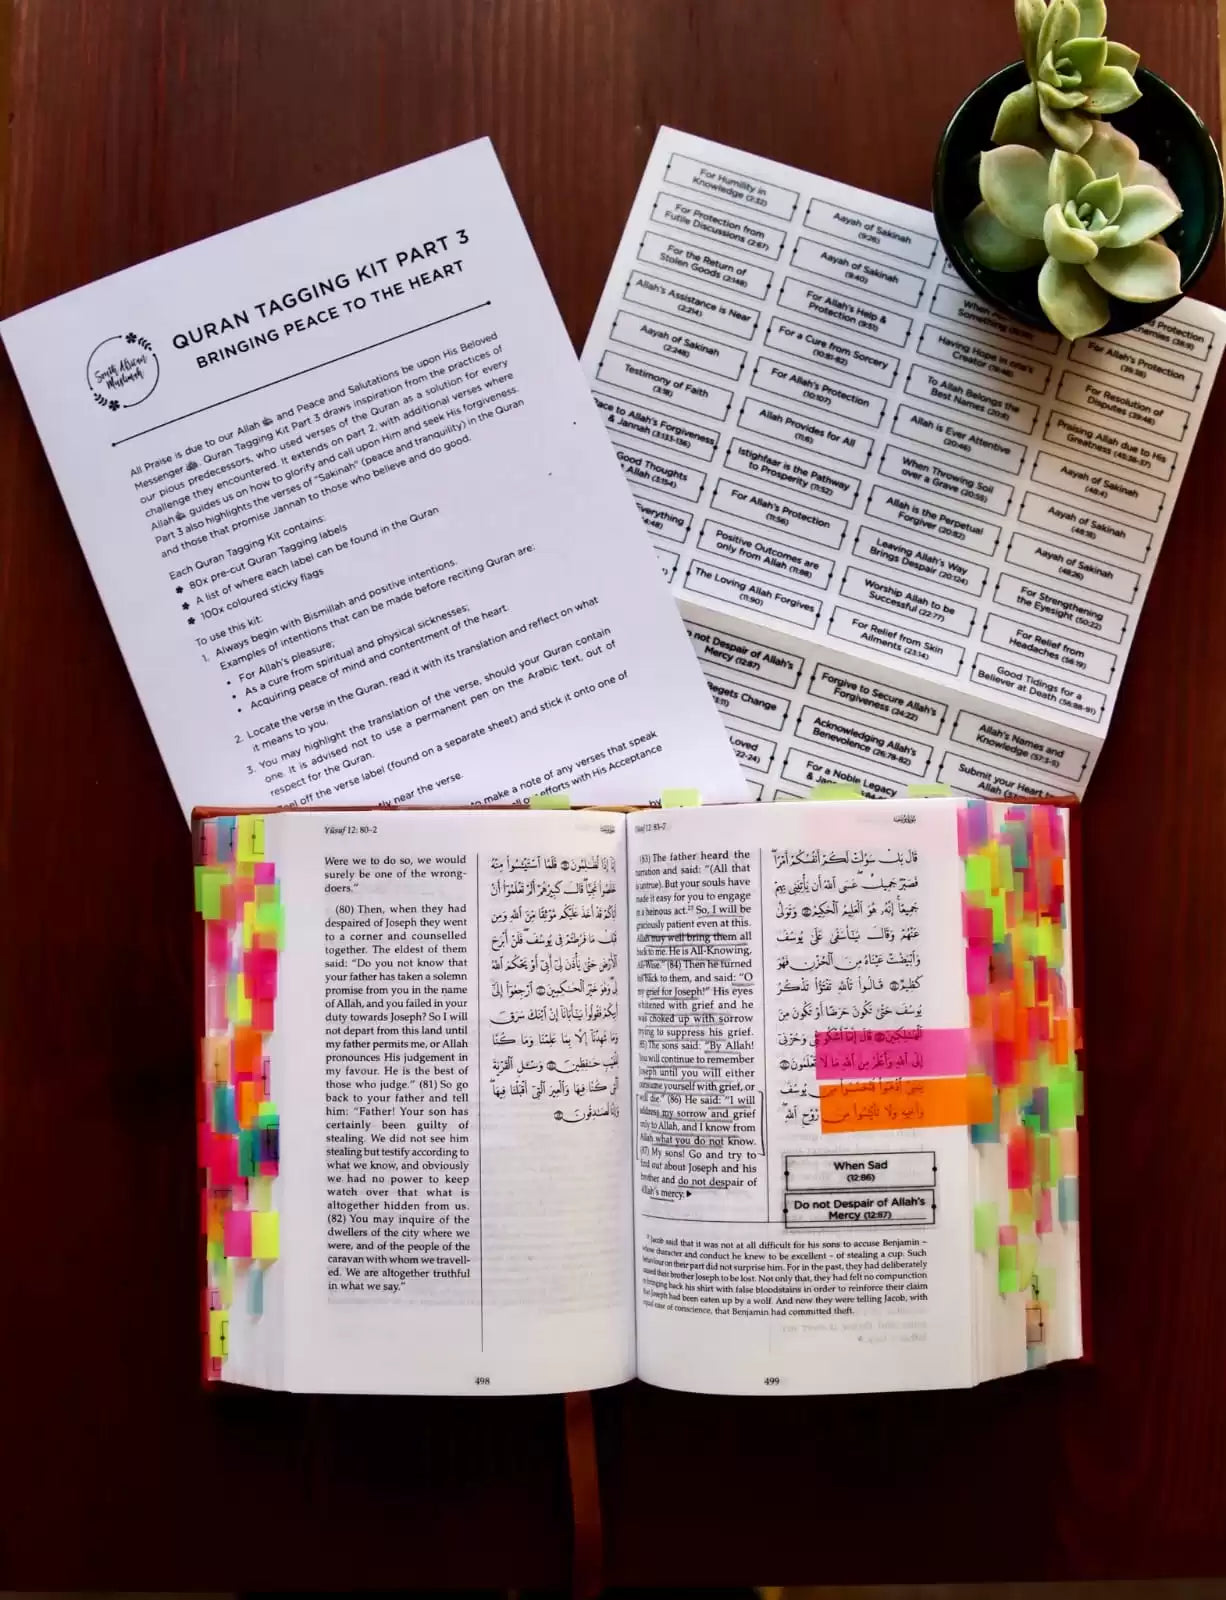 South African
Muslimah
QURAN TAGGING KIT PART 3
BRINGING PEACE TO THE HEART
All Praise is due to our Allah and Peace and Salutations be upon His Beloved
Messenger. Quran Tagging Kit Part 3 draws inspiration from the practices of
our pious predecessors, who used verses of the Quran as a solution for every
challenge they encountered. It extends on part 2, with additional verses where
Allah guides us on how to glorify and call upon Him and seek His forgiveness.
Part 3 also highlights the verses of "Sakinah" (peace and tranquility) in the Quran
and those that promise Jannah to those who believe and do good.
Each Quran Tagging Kit contains:
80x pre-cut Quran Tagging labels
A list of where each label can be found in the Quran
100x coloured sticky flags
To use this kit:
1. Always begin with Bismillah and positive intentions.
Examples of intentions that can be made before reciting Quran are:
• For Allah's pleasure;
• As a cure from spiritual and physical sicknesses;
• Acquiring peace of mind and contentment of the heart.
2. Locate the verse in the Quran, read it with its translation and reflect on what
it means to you.
3. You may highlight the translation of the verse, should your Quran contain
one. It is advised not to use a permanent pen on the Arabic text, out of
respect for the Quran.
off the verse label (found on a separate sheet) and stick it onto one of
near the verse.
to make a note of any verses that speak
efforts with His Acceptance
by
For Humility in
Knowledge (2:32)
For Protection from
Futile Discussions (2:67)
For the Return of
Stolen Goods (2:148)
Allah's Assistance is Near
(2:214)
Aayah of Sakinah
(2:248)
Testimony of Faith
(3:18)
to Allah's Forgiveness
& Jannah (3:133-136)
Good Thoughts
Allah (3:154)
Everything
Aayah of Sakinah
(9:26)
Aayah of Sakinah
(9:40)
For Allah's Help &
Protection (9:51)
For a Cure from Sorcery
(10:81-82)
For Allah's Protection
(10:107)
Allah Provides for All
(11:6)
Istighfaar is the Pathway
to Prosperity (11:52)
For Allah's Protection
(11:56)
Positive Outcomes are
only from Allah (11:88)
The Loving Allah Forgives
(11:90)
When
Something
Having Hope in one's
Creator (19:48)
To Allah Belongs the
Best Names (20:8)
Allah is Ever Attentive
(20:46)
When Throwing Soil
over a Grave (20:55)
Allah is the Perpetual
Forgiver (20:82)
Leaving Allah's Way
Brings Despair (20:124)
Worship Allah to be
Successful (22:77)
For Relief from Skin
Ailments (23:14)
Protection
For Allah's Protection
For Resolution of
Disputes (39:46)
Praising Allah due to His
Greatness (45:36-37)
Aayah of Sakinah
(48:4)
Aayah of Sakinah
(48:18)
Aayah of Sakinah
(48:26)
For Strengthening
the Eyesight (50:22)
For Relief from
Headaches (56:19)
Good Tidings for a
Believer at Death (56:88-91)
not Despair of Allah's
Mercy (12:87)
Regets Change
Loved
Forgive to Secure Allah's
Forgiveness (24:22)
Acknowledging Allah's
Benevolence (26:78-82)
For a Noble Legacy
Allah's Names and
Knowledge (57:3-5)
Submit your Heart
Allah
Yūsuf 12: 80–2
Were we to do so, we would
surely be one of the wrong-
doers."
(80) Then, when they had
despaired of Joseph they went
to a corner and counselled
together. The eldest of them
said: "Do you not know that
your father has taken a solemn
promise from you in the name
of Allah, and you failed in your
duty towards Joseph? So I will
not depart from this land until
my father permits me, or Allah
pronounces His judgement in
my favour. He is the best of
those who judge." (81) So go
back to your father and tell
him: "Father! Your son has
certainly been guilty of
stealing. We did not see him
stealing but testify according to
what we know, and obviously
we had no power to keep
watch over that what is
altogether hidden from us.
(82) You may inquire of the
dwellers of the city where we
were, and of the people of the
caravan with whom we travell-
ed. We are altogether truthful
in what we say."
498
Yūsuf 12: 83–7
(83) The father heard the
narration and said: "(All that
is untrue). But your souls have
made it easy for you to engage
in a heinous act. So, I will be
graciously patient even at this.
Allah may well bring them all
back to me. He is All-Knowing,
All-Wise." (84) Then he turned
his back to them, and said: "O
my grief for Joseph!" His eyes
whitened with grief and he
was choked up with sorrow
trying to suppress his grief.
(85) The sons said: "By Allah!
You will continue to remember
Joseph until you will either
consume yourself with grief, or
will die." (86) He said: "I will
address my sorrow and grief
only to Allah, and I know from
Allah what you do not know.
(87) My sons! Go and try to
find out about Joseph and his
brother and do not despair of
Allah's mercy.
قَالَ بَلْ سَوَّلَتْ لَكُمْ أَنفُسُكُمْ أَمْرًا
فَصَبْرٌ جَمِيلٌ عَسَى اللَّهُ أَن يَأْتِيَنِي بِهِمْ
جَمِيعًا إِنَّهُ هُوَ الْعَلِيمُ الْحَكِيمُ وَتَوَلَّى
عَنْهُمْ وَقَالَ يَا أَسَفَى عَلَى يُوسُفَ
وَابْيَضَّتْ عَيْنَاهُ مِنَ الْحُزْنِ فَهُوَ
كَظِيمٌ قَالُوا تَاللَّهِ تَفْتَأُ تَذْكُرُ
يُوسُفَ حَتَّى تَكُونَ حَرَضًا أَوْ تَكُونَ مِنَ
الْهَالِكِينَ قَالَ إِنَّمَا أَشْكُو بَثِّي وَحُزْنِي
إِلَى اللَّهِ وَأَعْلَمُ مِنَ اللَّهِ مَا لَا تَعْلَمُونَ
يَا بَنِيَّ اذْهَبُوا فَتَحَسَّسُوا مِن يُوسُفَ
وَأَخِيهِ وَلَا تَيْأَسُوا مِن رَّوْحِ اللَّهِ
When Sad
(12:86)
Do not Despair of Allah's
Mercy (12:87)
Jacob said that it was not at all difficult for his sons to accuse Benjamin –
whose character and conduct he knew to be excellent – of stealing a cup. Such
behaviour on their part did not surprise him. For in the past, they had deliberately
caused their brother Joseph to be lost. Not only that, they had felt no compunction
in bringing back his shirt with false bloodstains in order to reinforce their claim
that Joseph had been eaten up by a wolf. And now they were telling Jacob, with
equal ease of conscience, that Benjamin had committed theft.
499